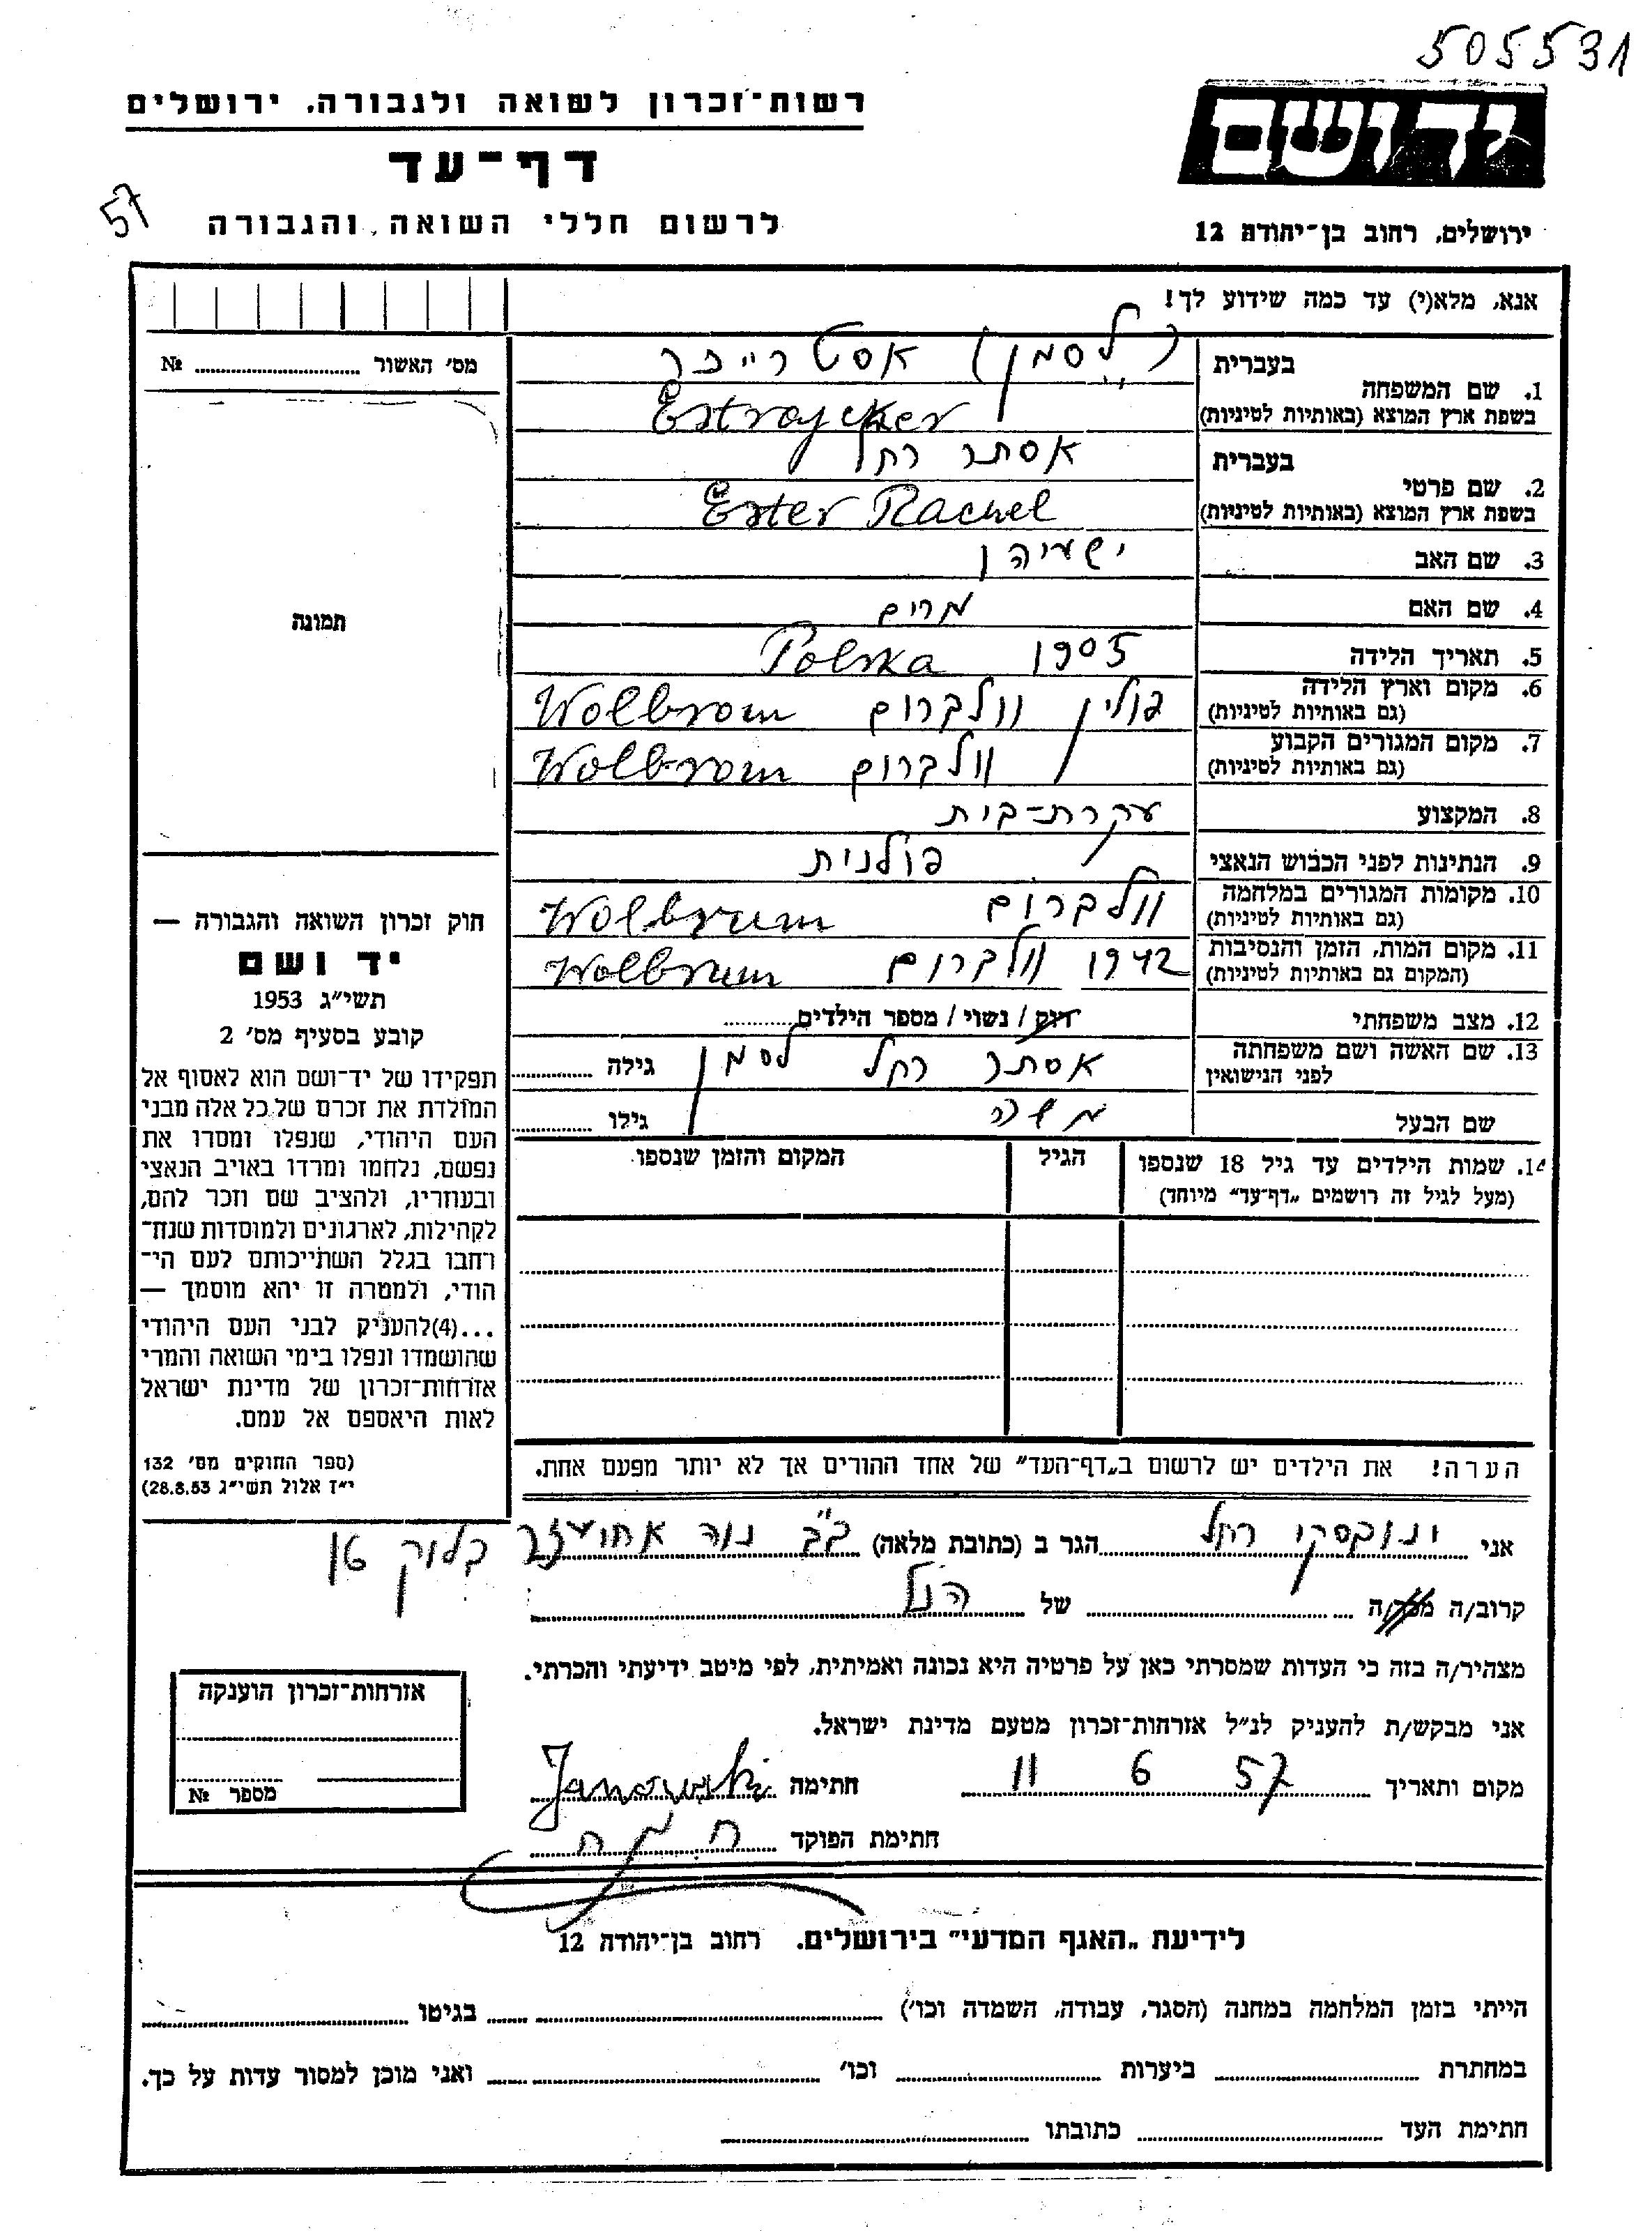 505531
רשות־זכרון לשואה ולגבורה, ירושלים
דף־עד
57
לרשום חללי השואה והגבורה
יד ושם
ירושלים, רחוב בן־יהודה 12
אנא, מלא(י) עד כמה שידוע לך!
מס׳ האשור № ........
תמונה
1. שם המשפחה בעברית (לסמן) אסטרייכר
בשפת ארץ המוצא (באותיות לטיניות) Estrajcker
2. שם פרטי בעברית אסתר רחל
בשפת ארץ המוצא (באותיות לטיניות) Ester Rachel
3. שם האב ישעיהו
4. שם האם מרים
5. תאריך הלידה 1905 Polska
6. מקום וארץ הלידה (גם באותיות לטיניות) פולין וולברום Wolbrom
7. מקום המגורים הקבוע (גם באותיות לטיניות) וולברום Wolbrom
8. המקצוע עקרת־בית
9. הנתינות לפני הכבוש הנאצי פולנית
10. מקומות המגורים במלחמה (גם באותיות לטיניות) וולברום Wolbrum
11. מקום המות, הזמן והנסיבות (המקום גם באותיות לטיניות) 1942 וולברום Wolbrum
12. מצב משפחתי רווק / נשוי / מספר הילדים ........
13. שם האשה ושם משפחתה לפני הנישואין אסתר רחל לסמן גילה ........
שם הבעל משה גילו ........
14. שמות הילדים עד גיל 18 שנספו (מעל לגיל זה רושמים „דף־עד״ מיוחד) הגיל המקום והזמן שנספו
הערה! את הילדים יש לרשום ב„דף־העד״ של אחד ההורים אך לא יותר מפעם אחת.
חוק זכרון השואה והגבורה —
יד ושם
תשי״ג 1953
קובע בסעיף מס׳ 2
תפקידו של יד־ושם הוא לאסוף אל
המולדת את זכרם של כל אלה מבני
העם היהודי, שנפלו ומסרו את
נפשם, נלחמו ומרדו באויב הנאצי
ובעוזריו, ולהציב שם וזכר להם,
לקהילות, לארגונים ולמוסדות שנח־
רחבו בגלל השתייכותם לעם הי־
הודי, ולמטרה זו יהא מוסמך —
...(4)להעניק לבני העם היהודי
שהושמדו ונפלו בימי השואה והמרי
אזרחות־זכרון של מדינת ישראל
לאות היאספם אל עמם.
(ספר החוקים מס׳ 132
י״ז אלול תשי״ג 28.8.53)
אני ינובסקי רחל הגר ב (כתובת מלאה) ב״ב נוה אחיעזר בלוק 16
קרוב/ה מכר/ה ........ של הנ״ל
מצהיר/ה בזה כי העדות שמסרתי כאן על פרטיה היא נכונה ואמיתית, לפי מיטב ידיעתי והכרתי.
אני מבקש/ת להעניק לנ״ל אזרחות־זכרון מטעם מדינת ישראל.
מקום ותאריך 11 6 57 חתימה Janowski
חתימת הפוקד
אזרחות־זכרון הוענקה
מספר №
לידיעת „האגף המדעי״ בירושלים. רחוב בן־יהודה 12
הייתי בזמן המלחמה במחנה (הסגר, עבודה, השמדה וכו׳) ........ בגיטו ........
במחתרת ........ ביערות ........ וכו׳ ........ ואני מוכן למסור עדות על כך.
חתימת העד ........ כתובתו ........